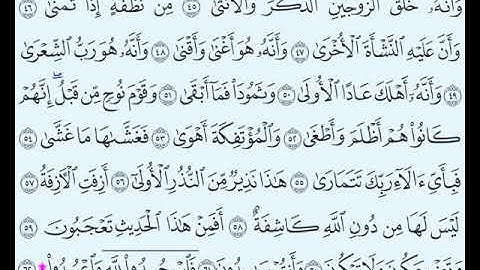 وَأَنَّهُۥ خَلَقَ ٱلزَّوْجَيْنِ ٱلذَّكَرَ وَٱلْأُنثَىٰ ٤٥ مِن نُّطْفَةٍ إِذَا تُمْنَىٰ ٤٦
وَأَنَّ عَلَيْهِ ٱلنَّشْأَةَ ٱلْأُخْرَىٰ ٤٧ وَأَنَّهُۥ هُوَ أَغْنَىٰ وَأَقْنَىٰ ٤٨ وَأَنَّهُۥ هُوَ رَبُّ ٱلشِّعْرَىٰ
٤٩ وَأَنَّهُۥٓ أَهْلَكَ عَادًا ٱلْأُولَىٰ ٥٠ وَثَمُودَا۟ فَمَآ أَبْقَىٰ ٥١ وَقَوْمَ نُوحٍ مِّن قَبْلُ ۖ إِنَّهُمْ
كَانُوا۟ هُمْ أَظْلَمَ وَأَطْغَىٰ ٥٢ وَٱلْمُؤْتَفِكَةَ أَهْوَىٰ ٥٣ فَغَشَّىٰهَا مَا غَشَّىٰ ٥٤
فَبِأَىِّ ءَالَآءِ رَبِّكَ تَتَمَارَىٰ ٥٥ هَٰذَا نَذِيرٌ مِّنَ ٱلنُّذُرِ ٱلْأُولَىٰٓ ٥٦ أَزِفَتِ ٱلْـَٔازِفَةُ ٥٧
لَيْسَ لَهَا مِن دُونِ ٱللَّهِ كَاشِفَةٌ ٥٨ أَفَمِنْ هَٰذَا ٱلْحَدِيثِ تَعْجَبُونَ ٥٩
وَتَضْحَكُونَ وَلَا تَبْكُونَ ٦٠ وَأَنتُمْ سَٰمِدُونَ ٦١ فَٱسْجُدُوا۟ لِلَّهِ وَٱعْبُدُوا۟ ٦٢